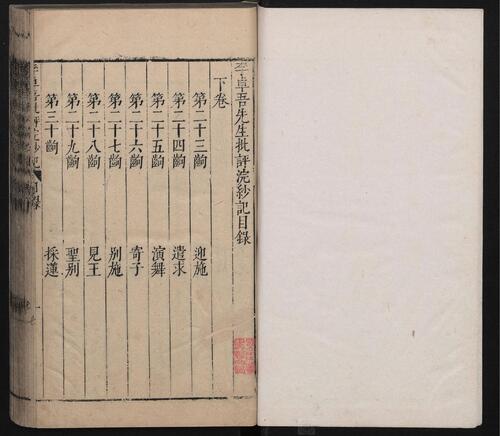 李卓吾先生批評浣紗記目錄
下卷
第二十三齣 迎施
第二十四齣 遣求
第二十五齣 演舞
第二十六齣 寄子
第二十七齣 別施
第二十八齣 見王
第二十九齣 聖別
第三十齣 採蓮